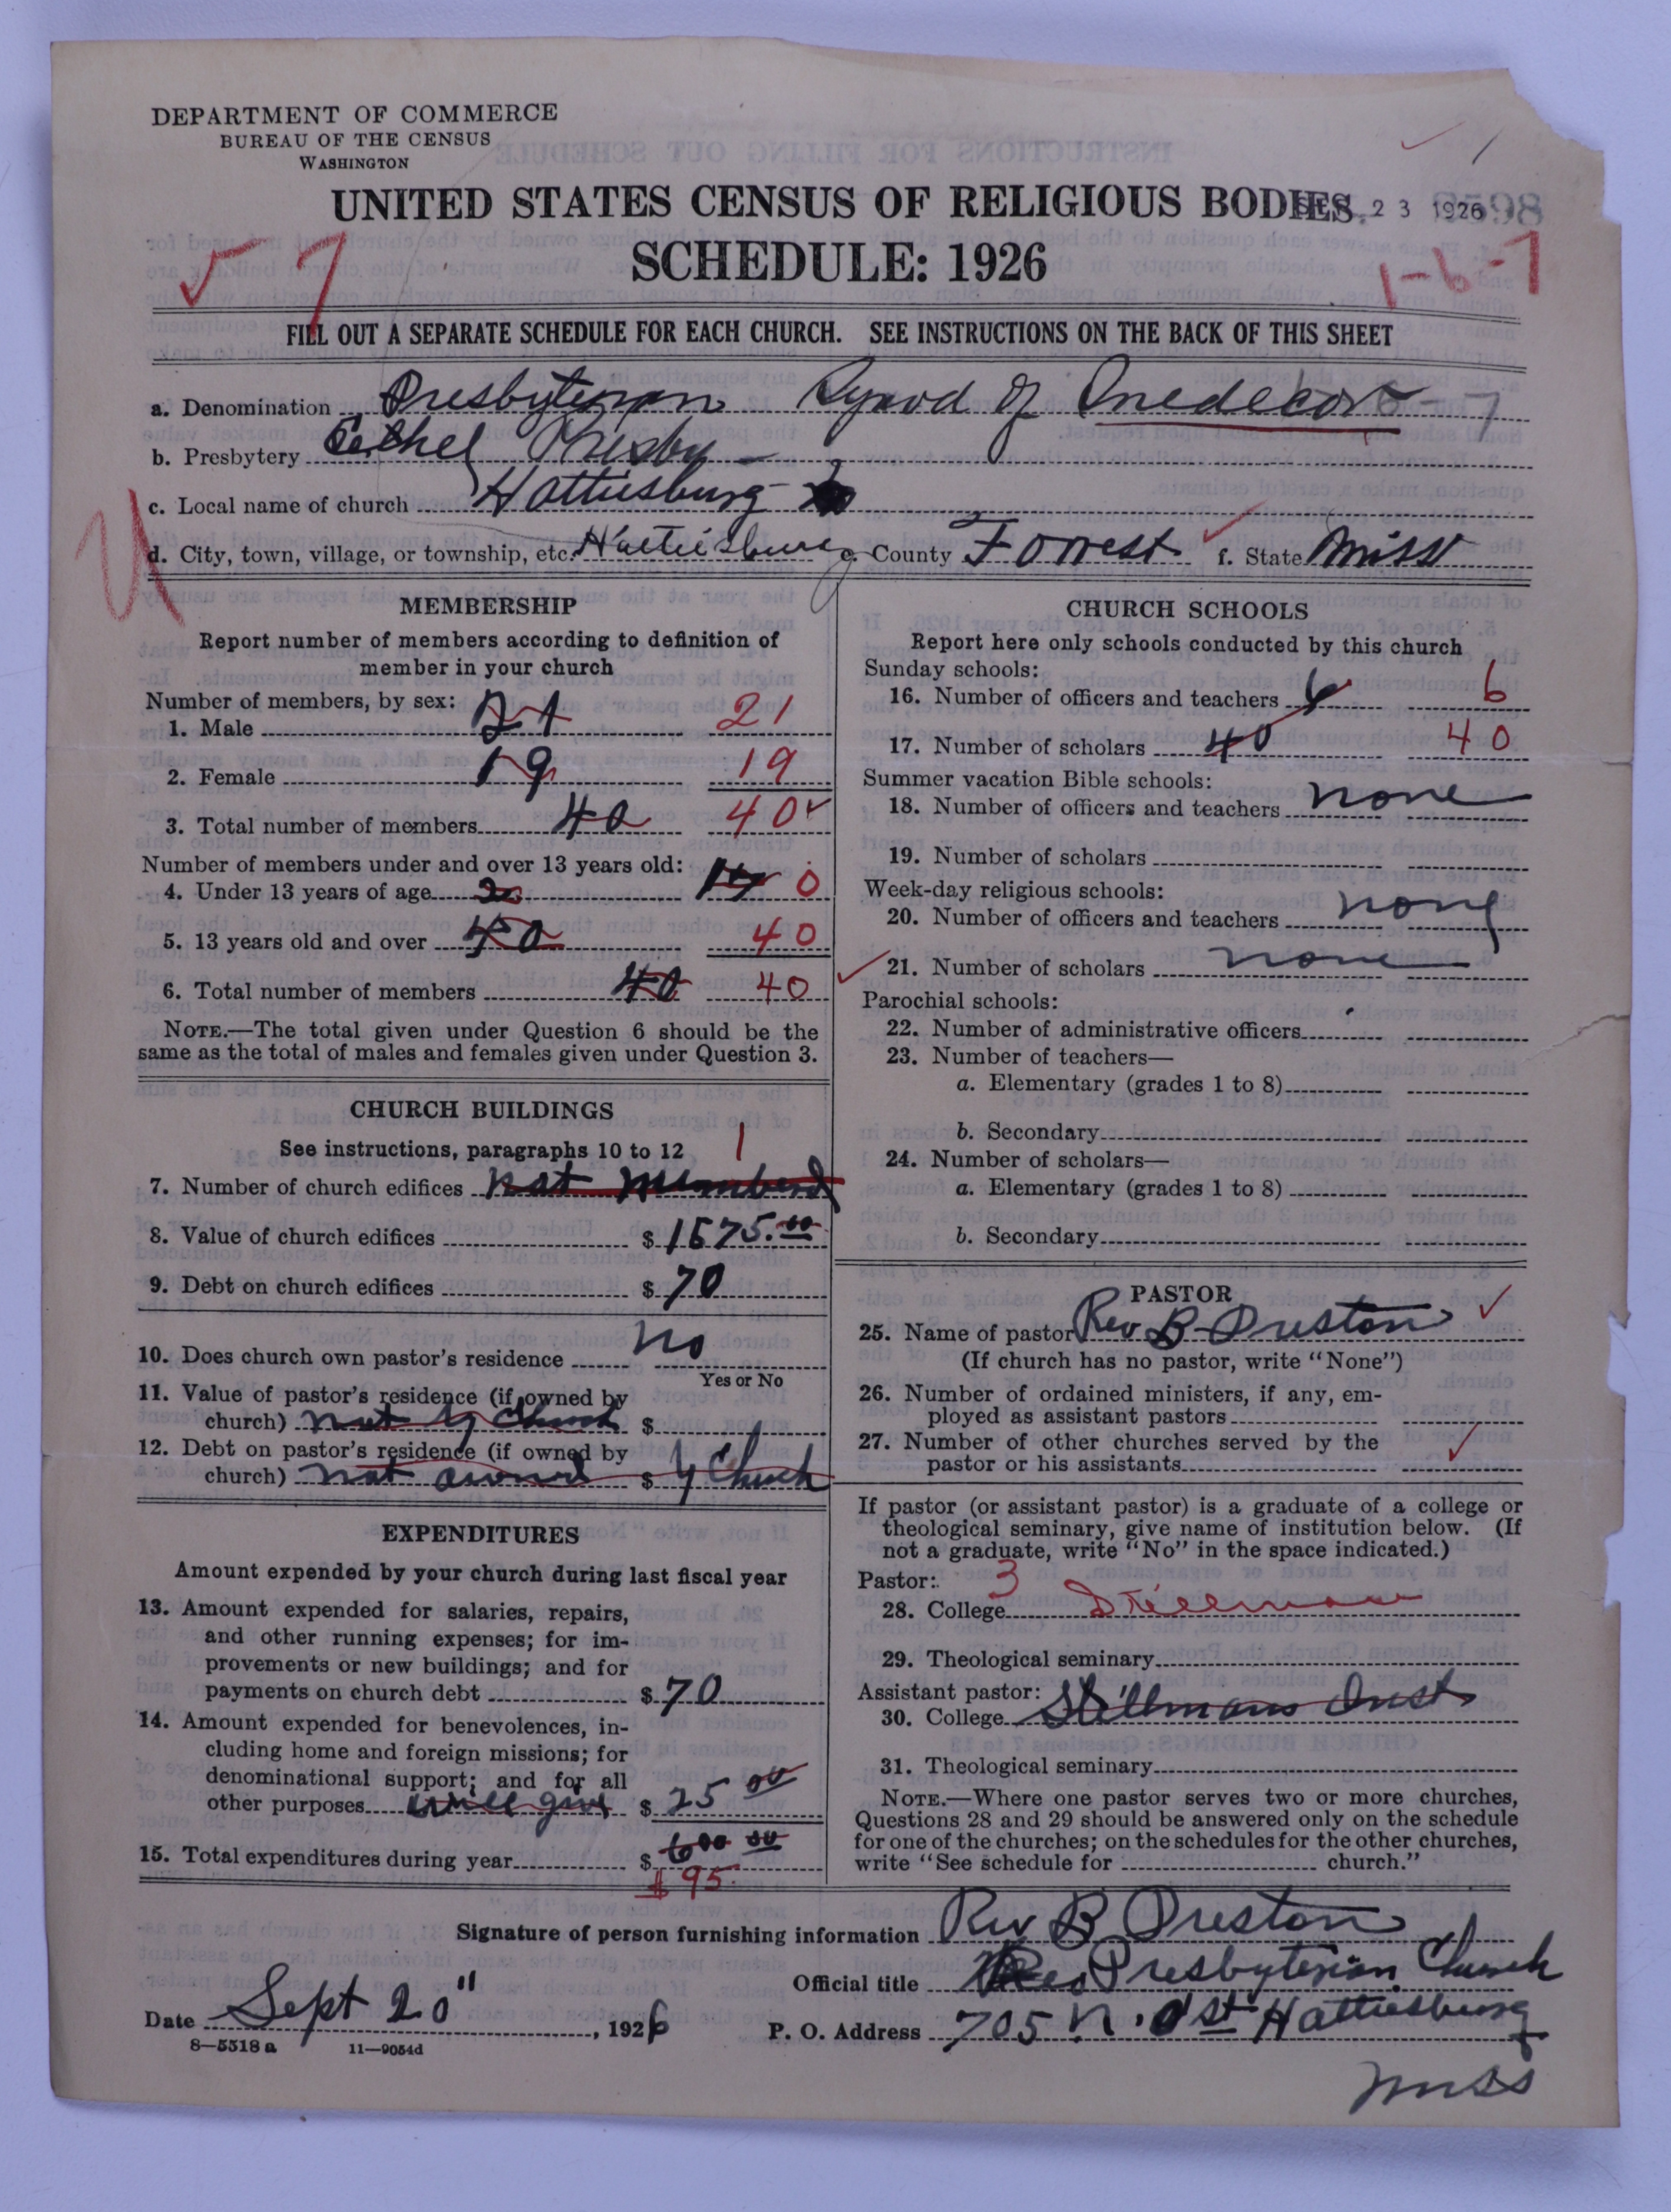 DEPARTMENT OF COMMERCE
BUREAU OF THE CENSUS
WASHINGTON
UNITED STATES CENSUS OF RELIGIOUS BODIES
23 1926 8598
SCHEDULE: 1926
7
1-6-7
FILL OUT A SEPARATE SCHEDULE FOR EACH CHURCH. SEE INSTRUCTIONS ON THE BACK OF THIS SHEET
a. Denomination Presbyterian Synod of Snedecor 6-7
b. Presbytery Bethel Presby
c. Local name of church Hattiesburg
d. City, town, village, or township, etc. Hattiesburg e. County Forrest f. State Miss
MEMBERSHIP
Report number of members according to definition of
member in your church
Number of members, by sex:
1. Male 21 21
2. Female 19 19
3. Total number of members 40 40
Number of members under and over 13 years old:
4. Under 13 years of age 0
5. 13 years old and over 40 40
6. Total number of members 40 40
NOTE.—The total given under Question 6 should be the
same as the total of males and females given under Question 3.
CHURCH BUILDINGS
See instructions, paragraphs 10 to 12 1
7. Number of church edifices not numberd
8. Value of church edifices $ 1575.00
9. Debt on church edifices $ 70
10. Does church own pastor's residence no
Yes or No
11. Value of pastor's residence (if owned by
church) not by Church $
12. Debt on pastor's residence (if owned by
church) not owned $ by Church
EXPENDITURES
Amount expended by your church during last fiscal year
13. Amount expended for salaries, repairs,
and other running expenses; for im-
provements or new buildings; and for
payments on church debt $ 70
14. Amount expended for benevolences, in-
cluding home and foreign missions; for
denominational support; and for all
other purposes will give $ 25 00
15. Total expenditures during year $ 600 00
$ 95
CHURCH SCHOOLS
Report here only schools conducted by this church
Sunday schools:
16. Number of officers and teachers 6 6
17. Number of scholars 40 40
Summer vacation Bible schools:
18. Number of officers and teachers none
19. Number of scholars
Week-day religious schools:
20. Number of officers and teachers none
21. Number of scholars none
Parochial schools:
22. Number of administrative officers
23. Number of teachers—
a. Elementary (grades 1 to 8)
b. Secondary
24. Number of scholars—
a. Elementary (grades 1 to 8)
b. Secondary
PASTOR
25. Name of pastor Rev B. Preston
(If church has no pastor, write "None")
26. Number of ordained ministers, if any, em-
ployed as assistant pastors
27. Number of other churches served by the
pastor or his assistants
If pastor (or assistant pastor) is a graduate of a college or
theological seminary, give name of institution below. (If
not a graduate, write "No" in the space indicated.)
Pastor: 3
28. College Stillman
29. Theological seminary
Assistant pastor:
30. College Stillmans Inst
31. Theological seminary
NOTE.—Where one pastor serves two or more churches,
Questions 28 and 29 should be answered only on the schedule
for one of the churches; on the schedules for the other churches,
write "See schedule for church."
Signature of person furnishing information Rev B Preston
Official title Presbyterian Church
Date Sept 20", 1926 P. O. Address 705 N. St Hattiesburg
Miss
8—5518a 11—9054d